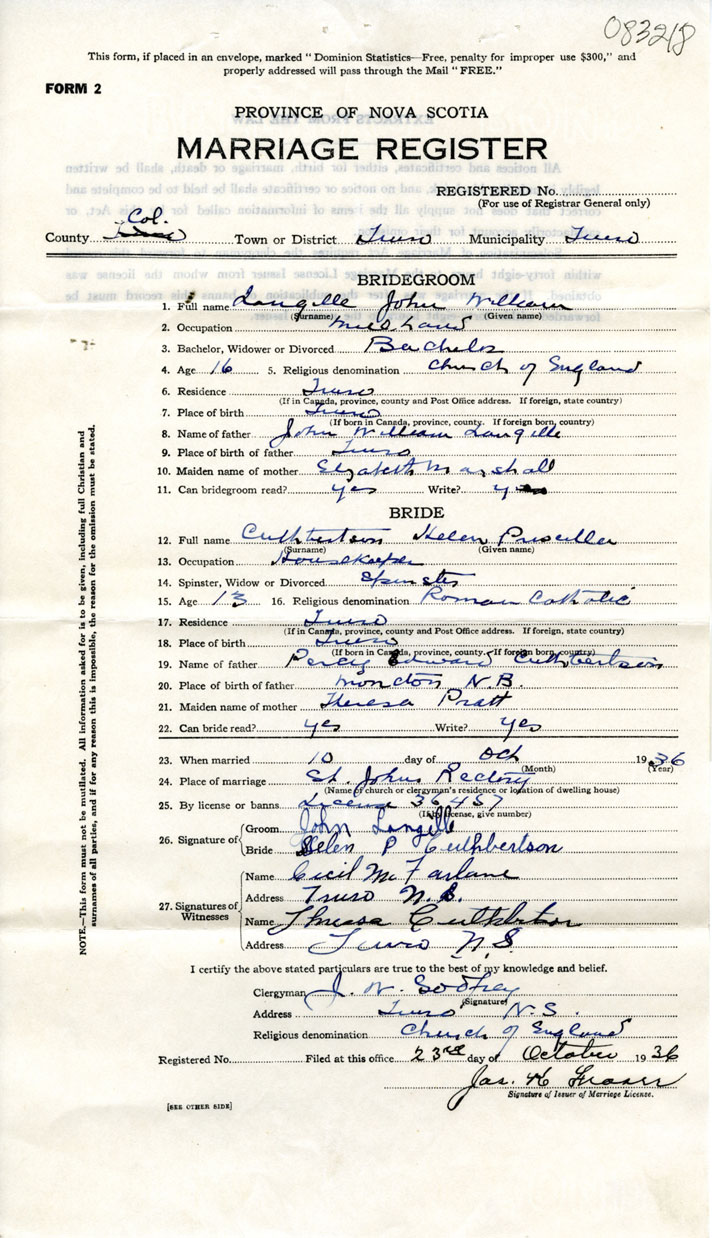 083218
This form, if placed in an envelope, marked "Dominion Statistics—Free, penalty for improper use $300," and
properly addressed will pass through the Mail "FREE."
FORM 2
PROVINCE OF NOVA SCOTIA
MARRIAGE REGISTER
REGISTERED No.
(For use of Registrar General only)
Col.
County Town or District Truro Municipality Truro
BRIDEGROOM
1. Full name Langille John William
(Surname) (Given name)
2. Occupation
3. Bachelor, Widower or Divorced Bachelor
4. Age 16 5. Religious denomination Church of England
6. Residence Truro
(If in Canada, province, county and Post Office address. If foreign, state country)
7. Place of birth Truro
(If born in Canada, province, county. If foreign born, country)
8. Name of father John William Langille
9. Place of birth of father Truro
10. Maiden name of mother Elizabeth Marshall
11. Can bridegroom read? yes Write? yes
BRIDE
12. Full name Cuthbertson Helen Prisciller
(Surname) (Given name)
13. Occupation Housekeeper
14. Spinster, Widow or Divorced Spinster
15. Age 13 16. Religious denomination Roman Catholic
17. Residence Truro
(If in Canada, province, county and Post Office address. If foreign, state country)
18. Place of birth Truro
(If born in Canada, province, county. If foreign born, country)
19. Name of father Percy Edward Cuthbertson
20. Place of birth of father Moncton N.B.
21. Maiden name of mother Theresa Pratt
22. Can bride read? yes Write? yes
23. When married 10 day of Oct 1936
(Month) (Year)
24. Place of marriage St. Johns Rectory
(Name of church or clergyman's residence or location of dwelling house)
25. By license or banns License 36457
(If by license, give number)
26. Signature of Groom John Langille
Bride Helen P Cuthbertson
27. Signatures of Witnesses
Name Cecil McFarlane
Address Truro N.S.
Name Theresa Cuthbertson
Address Truro N.S.
I certify the above stated particulars are true to the best of my knowledge and belief.
Clergyman J. W. Godfrey
(Signature)
Address Truro N.S.
Religious denomination Church of England
Registered No. Filed at this office 23rd day of October 1936
Jas. H. Fraser
Signature of Issuer of Marriage License.
[SEE OTHER SIDE]
NOTE.—This form must not be mutilated. All information asked for is to be given, including full Christian and
surnames of all parties, and if for any reason this is impossible, the reason for the omission must be stated.